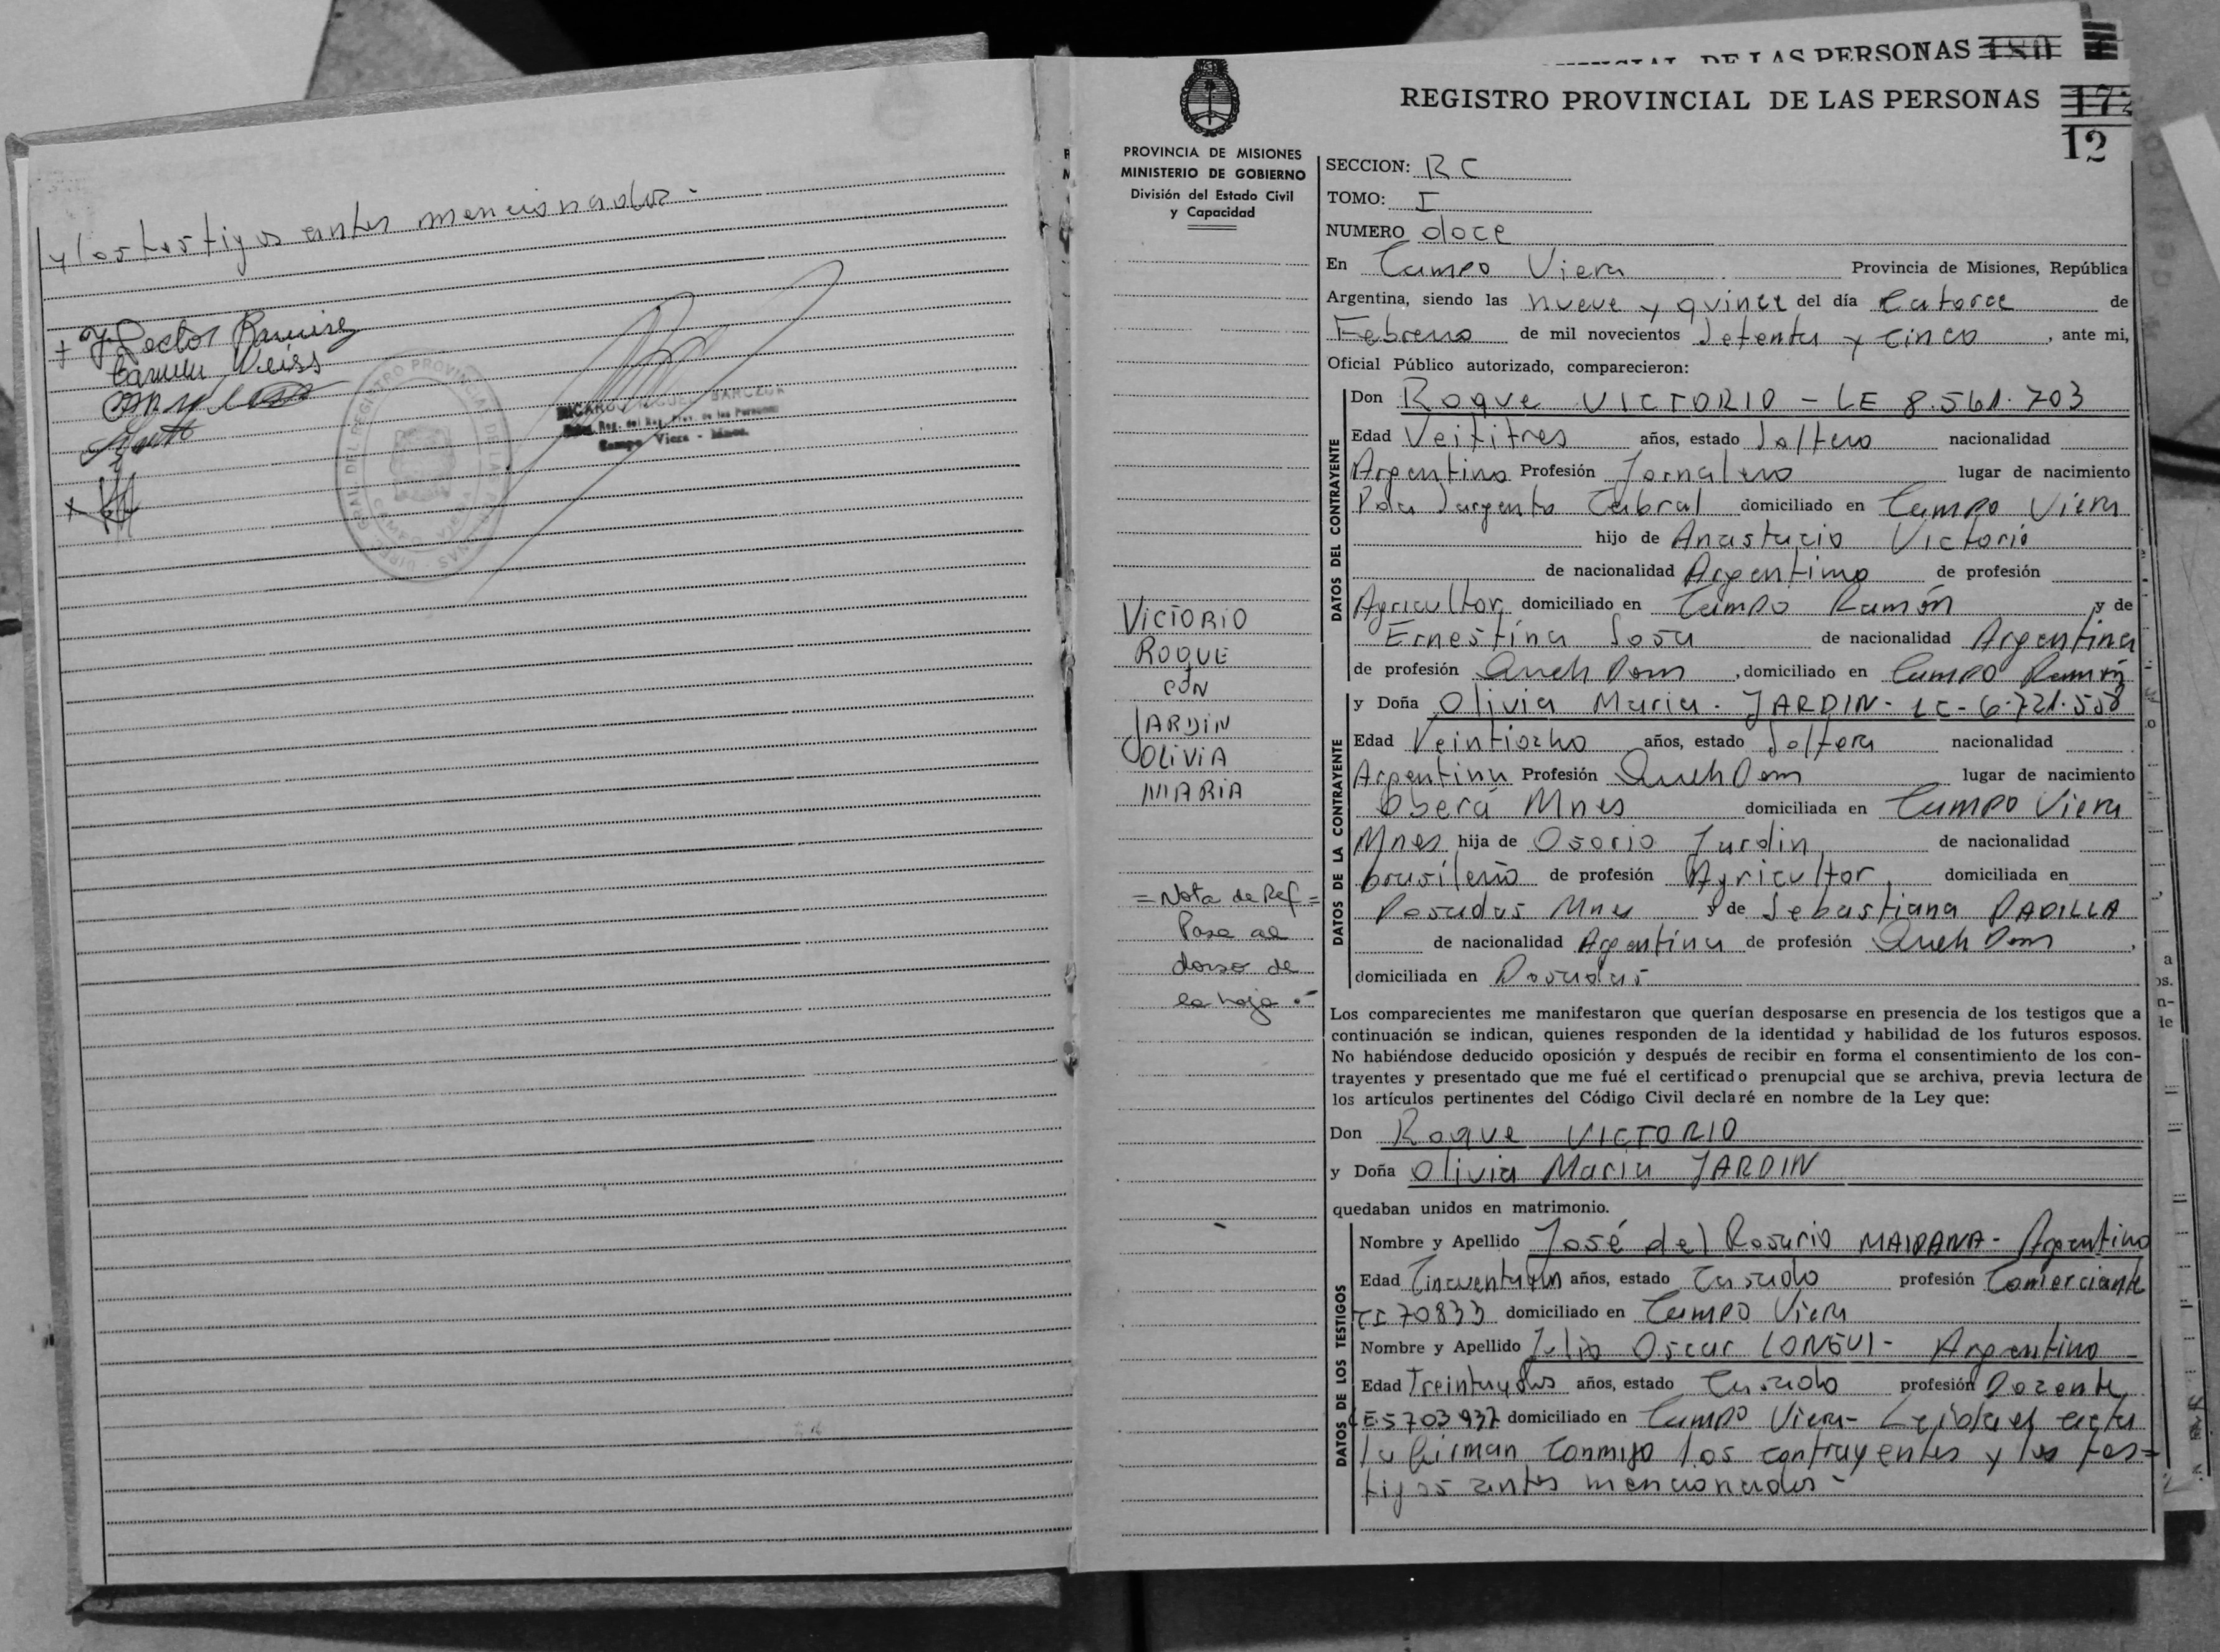 y los testigos antes mencionados -
Hector Ramirez
Carmen Weiss
RICARDO MIGUEL BARCZUK
Reg. del Reg. Prov. de las Personas
Campo Viera - Mnes.
DE LAS PERSONAS 180
REGISTRO PROVINCIAL DE LAS PERSONAS
12
PROVINCIA DE MISIONES
MINISTERIO DE GOBIERNO
División del Estado Civil
y Capacidad
SECCION: RC
TOMO: I
NUMERO doce
En Campo Viera Provincia de Misiones, República
Argentina, siendo las nueve y quince del día Catorce de
Febrero de mil novecientos Setenta y cinco, ante mi,
Oficial Público autorizado, comparecieron:
DATOS DEL CONTRAYENTE
Don Roque VICTORIO - LE 8.561.703
Edad Veititres años, estado Soltero nacionalidad
Argentino Profesión Jornalero lugar de nacimiento
Pdo Sargento Cabral domiciliado en Campo Viera
hijo de Anastacio Victorio
de nacionalidad Argentino de profesión
Agricultor domiciliado en Campo Ramón y de
Ernestina Sosa de nacionalidad Argentina
de profesión Queh Dom, domiciliado en Campo Ramón
DATOS DE LA CONTRAYENTE
y Doña Olivia Maria - JARDIN - LC - 6.721.558
Edad Veintiocho años, estado Soltera nacionalidad
Argentina Profesión Queh Dom lugar de nacimiento
Oberá Mnes domiciliada en Campo Viera
Mnes hija de Osorio Jardin de nacionalidad
brasileño de profesión Agricultor, domiciliada en
Posadas Mnes y de Sebastiana PADILLA
de nacionalidad Argentina de profesión Queh Dom,
domiciliada en Posadas
VICTORIO
ROQUE
CON
JARDIN
OLIVIA
MARIA
= Nota de Ref =
Pase al
dorso de
la hoja .-
Los comparecientes me manifestaron que querían desposarse en presencia de los testigos que a
continuación se indican, quienes responden de la identidad y habilidad de los futuros esposos.
No habiéndose deducido oposición y después de recibir en forma el consentimiento de los con-
trayentes y presentado que me fué el certificado prenupcial que se archiva, previa lectura de
los artículos pertinentes del Código Civil declaré en nombre de la Ley que:
Don Roque VICTORIO
y Doña Olivia Maria JARDIN
quedaban unidos en matrimonio.
DATOS DE LOS TESTIGOS
Nombre y Apellido José del Rosario MAIDANA - Argentino
Edad Cincuenta años, estado Casado profesión Comerciante
CI 70833 domiciliado en Campo Viera
Nombre y Apellido Julio Oscar - Argentino -
Edad Treinta y dos años, estado Casado profesión Docente
LE 5703937 domiciliado en Campo Viera - Leida el acta
la firman conmigo los contrayentes y los tes=
tigos antes mencionados -